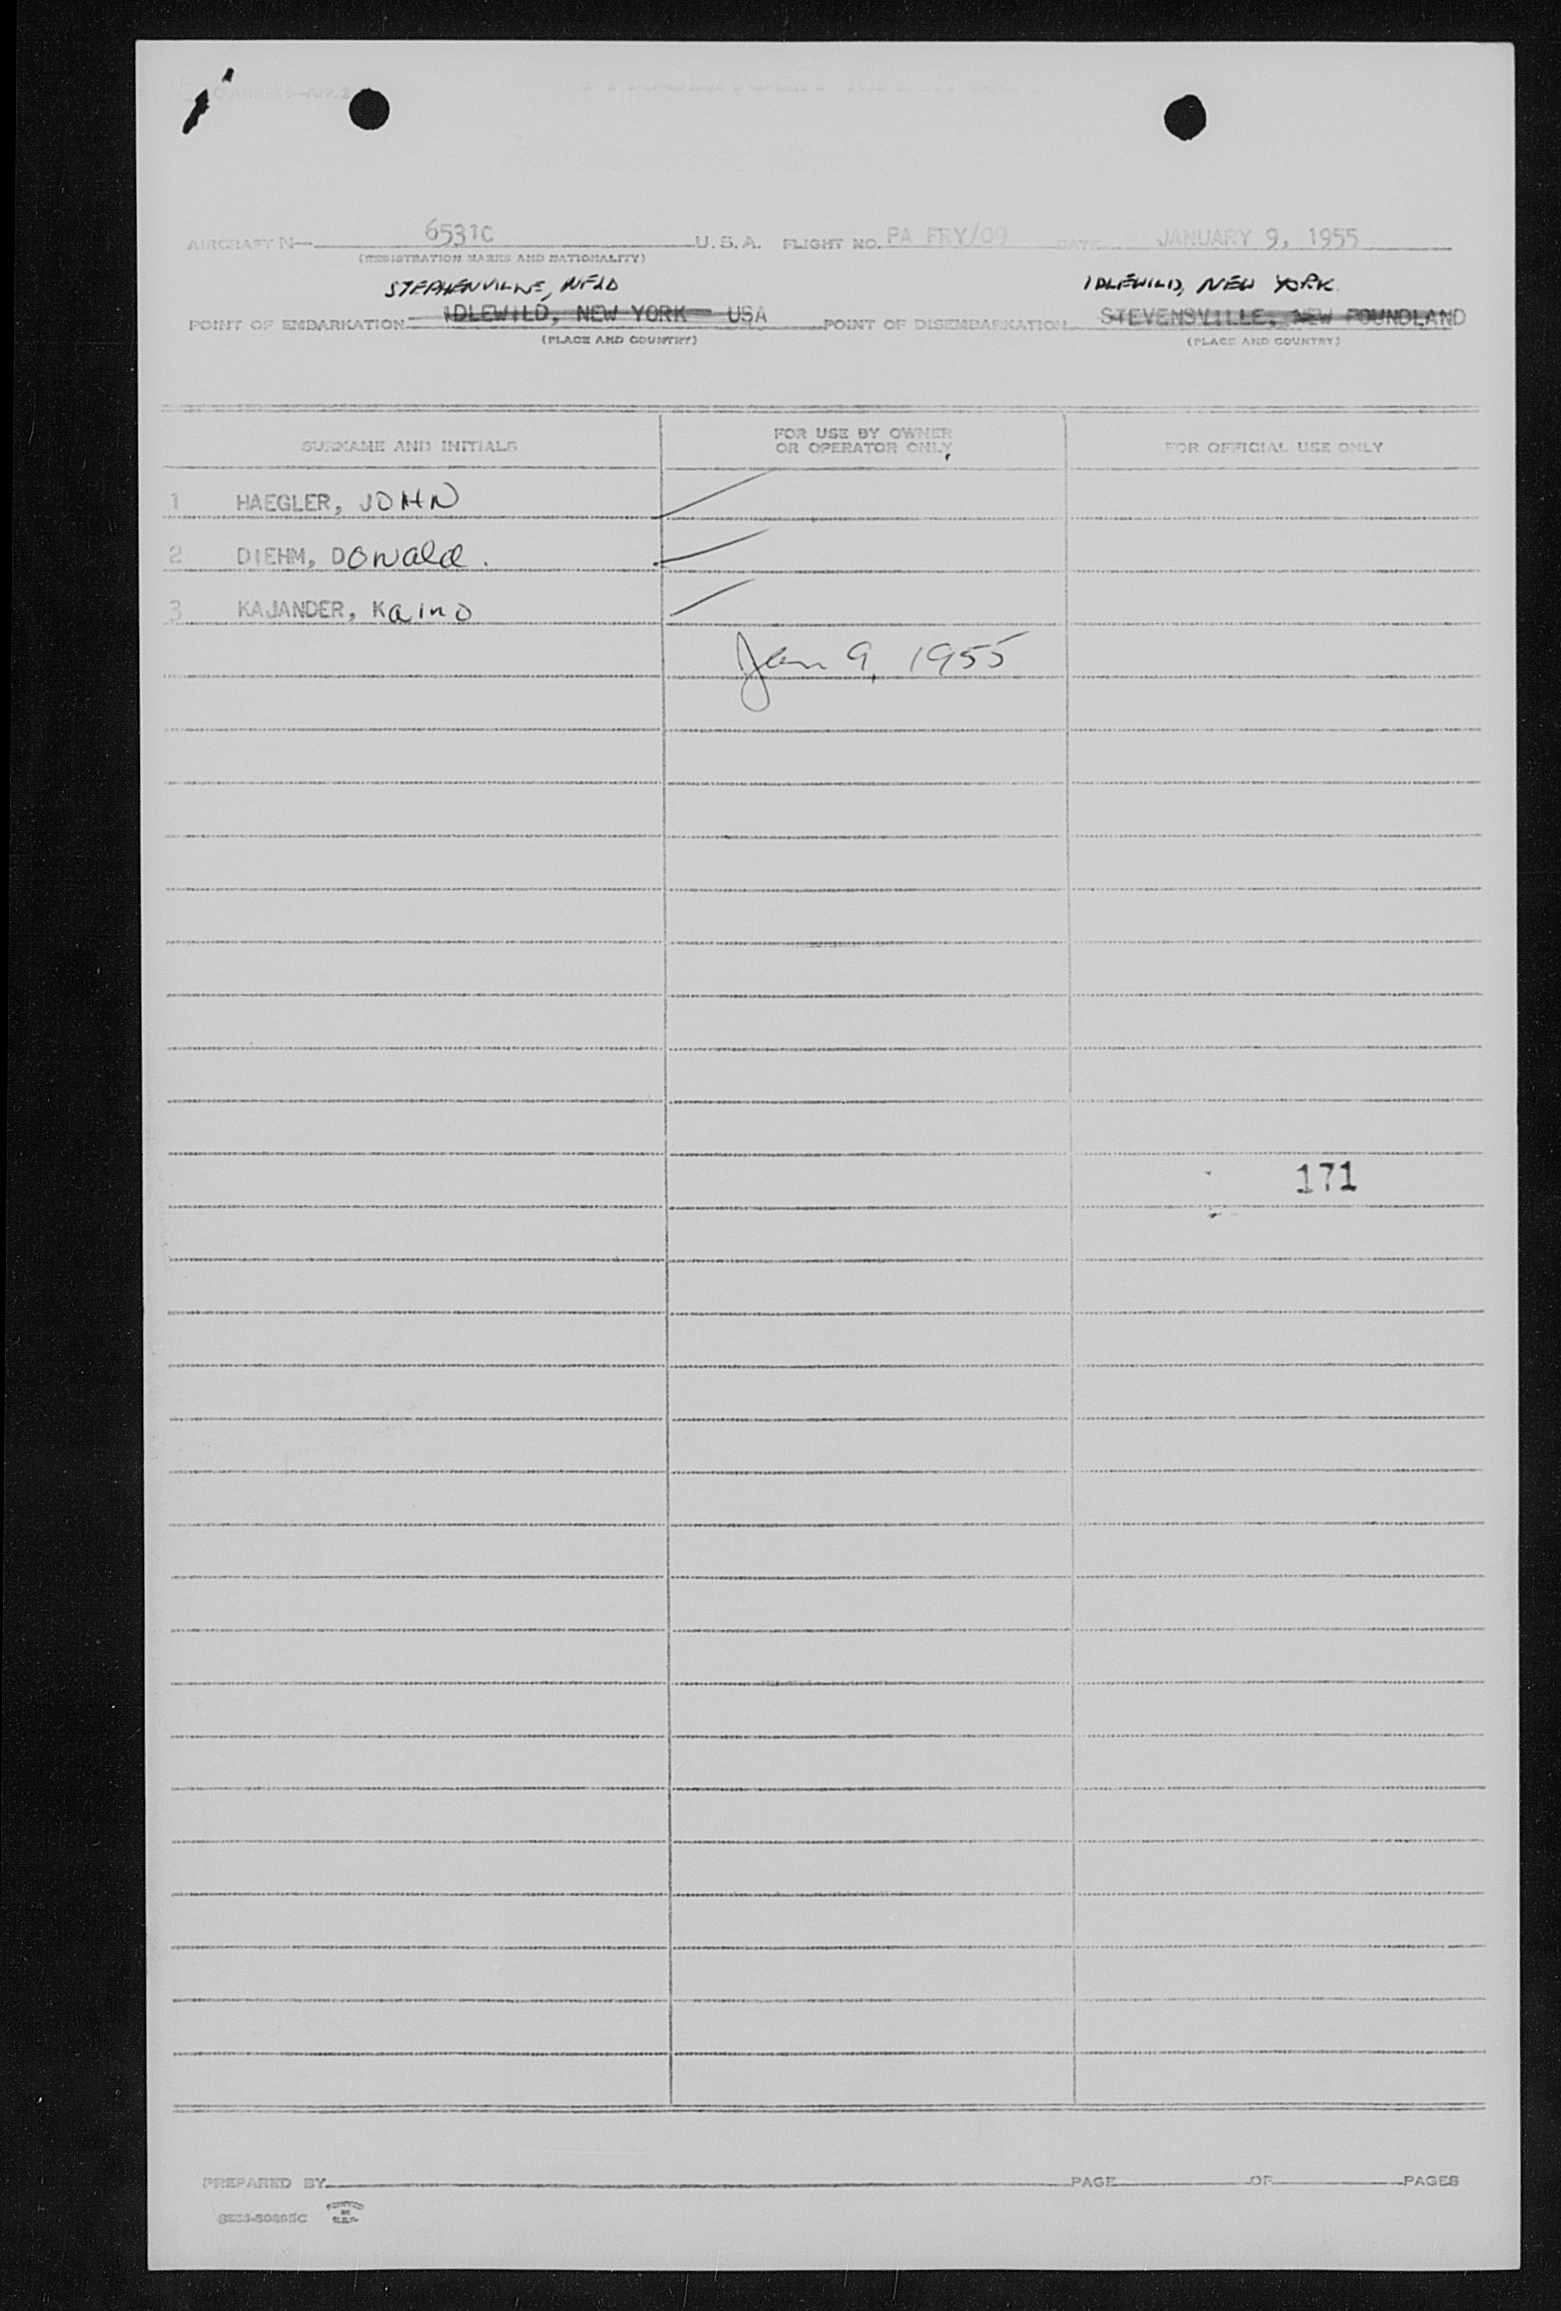 AIRCRAFT N— 6531C U. S. A. FLIGHT NO. PA FRY/09 DATE JANUARY 9, 1955
(REGISTRATION MARKS AND NATIONALITY)
STEPHENVILLE, NFLD IDLEWILD, NEW YORK.
POINT OF EMBARKATION IDLEWILD, NEW YORK USA POINT OF DISEMBARKATION STEVENSVILLE, NEW FOUNDLAND
(PLACE AND COUNTRY) (PLACE AND COUNTRY)
SURNAME AND INITIALS FOR USE BY OWNER OR OPERATOR ONLY FOR OFFICIAL USE ONLY
1 HAEGLER, JOHN
2 DIEHM, DONald.
3 KAJANDER, Kaino
Jan 9, 1955
171
PREPARED BY PAGE OF PAGES